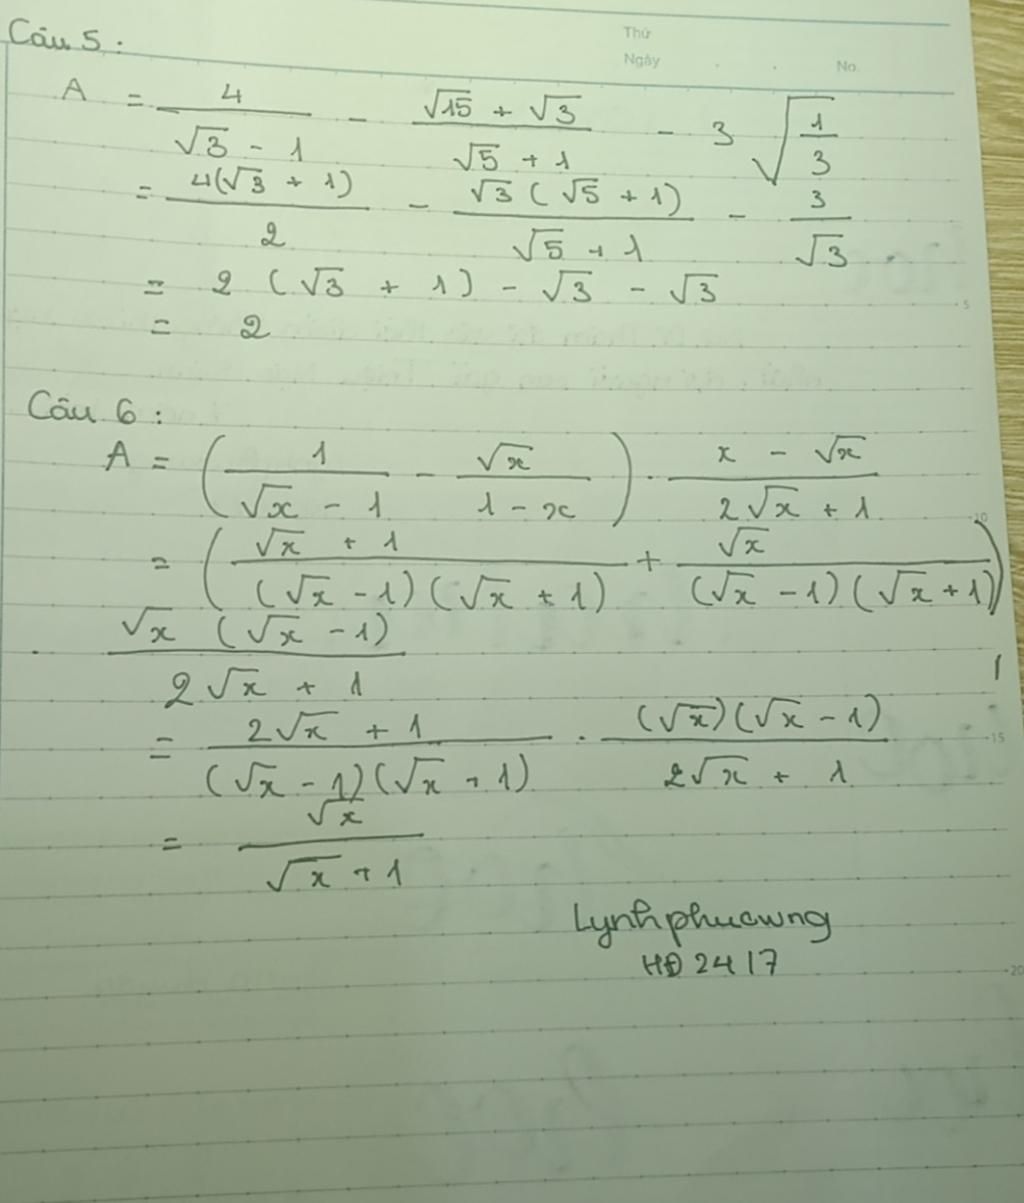 Thứ
Ngày . . No.
Câu 5 :
A = 4/(√3 - 1) - (√15 + √3)/(√5 + 1) - 3√(1/3)
= 4(√3 + 1)/2 - √3(√5 + 1)/(√5 + 1) - 3/√3
= 2 (√3 + 1) - √3 - √3
= 2
Câu 6 :
A = (1/(√x - 1) - √x/(1 - x)) . (x - √x)/(2√x + 1)
= ((√x + 1)/((√x - 1)(√x + 1)) + √x/((√x - 1)(√x + 1)))
. √x (√x - 1)/(2√x + 1)
= (2√x + 1)/((√x - 1)(√x + 1)) . (√x)(√x - 1)/(2√x + 1)
= √x/(√x + 1)
Lynhphuowng
HĐ 2417
5
10
15
20